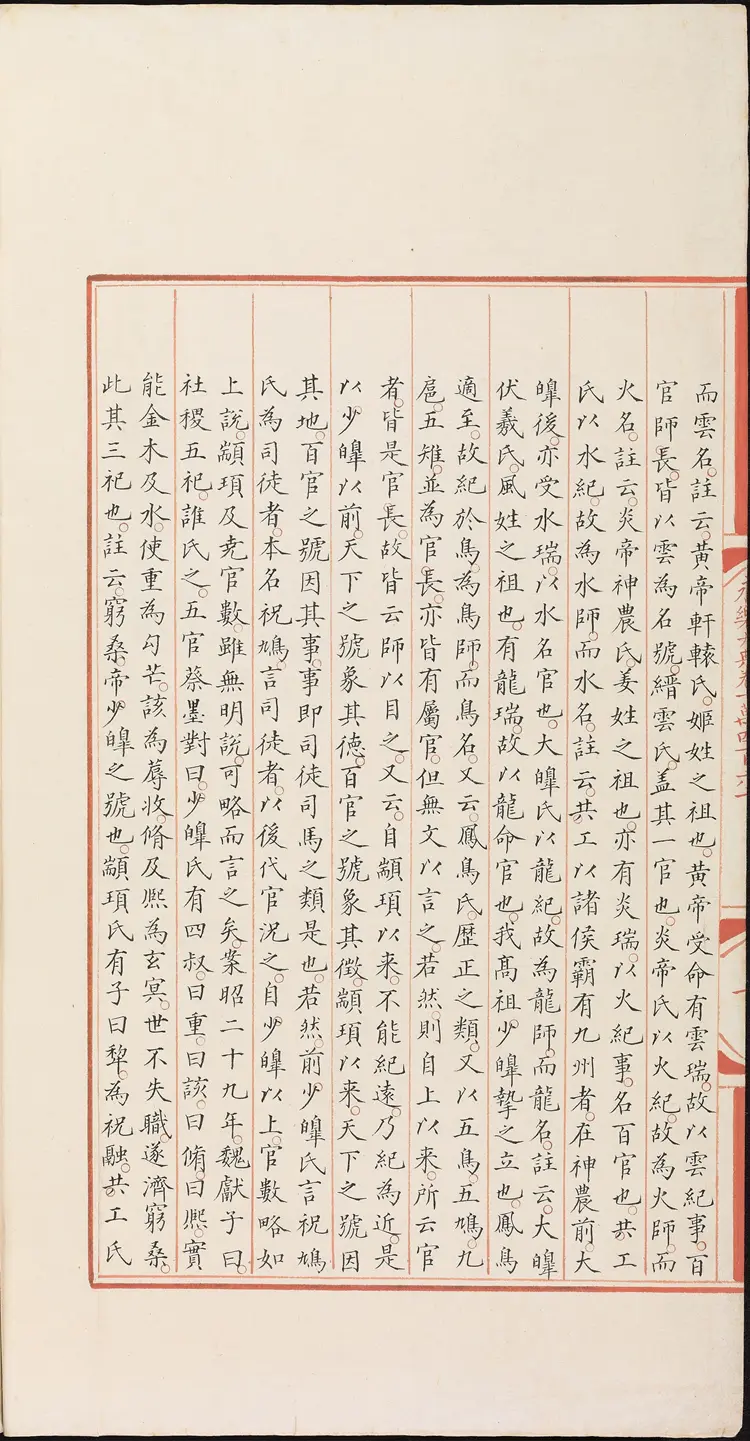 而雲名註云黃帝軒轅氏姬姓之祖也黃帝受命有雲瑞故以雲紀事百
官師長皆以雲為名號縉雲氏蓋其一官也炎帝氏以火紀故為火師而
火名註云炎帝神農氏姜姓之祖也亦有炎瑞以火紀事名百官也共工
氏以水紀故為水師而水名註云共工以諸侯霸有九州者在神農前大
皥後亦受水瑞以水名官也大皥氏以龍紀故為龍師而龍名註云大皥
伏羲氏風姓之祖也有龍瑞故以龍命官也我髙祖少皥摯之立也鳳鳥
適至故紀於鳥為鳥師而鳥名又云鳳鳥氏歷正之類又以五鳥五鳩九
扈五雉並為官長亦皆有屬官但無文以言之若然則自上以来所云官
者皆是官長故皆云師以目之又云自顓頊以来不能紀遠乃紀為近是
以少皥以前天下之號象其德百官之號象其徵顓頊以来天下之號因
其地百官之號因其事事即司徒司馬之類是也若然前少皥氏言祝鳩
氏為司徒者本名祝鳩言司徒者以後代官況之自少皥以上官數略如
上說顓頊及堯官數雖無明說可略而言之矣案昭二十九年魏獻子曰
社稷五祀誰氏之五官蔡墨對曰少皥氏有四叔曰重曰該曰脩曰熈實
能金木及水使重為勾芒該為蓐收脩及熈為玄冥世不失職遂濟窮桑
此其三祀也註云窮桑帝少皥之號也顓頊氏有子曰犂為祝融共工氏